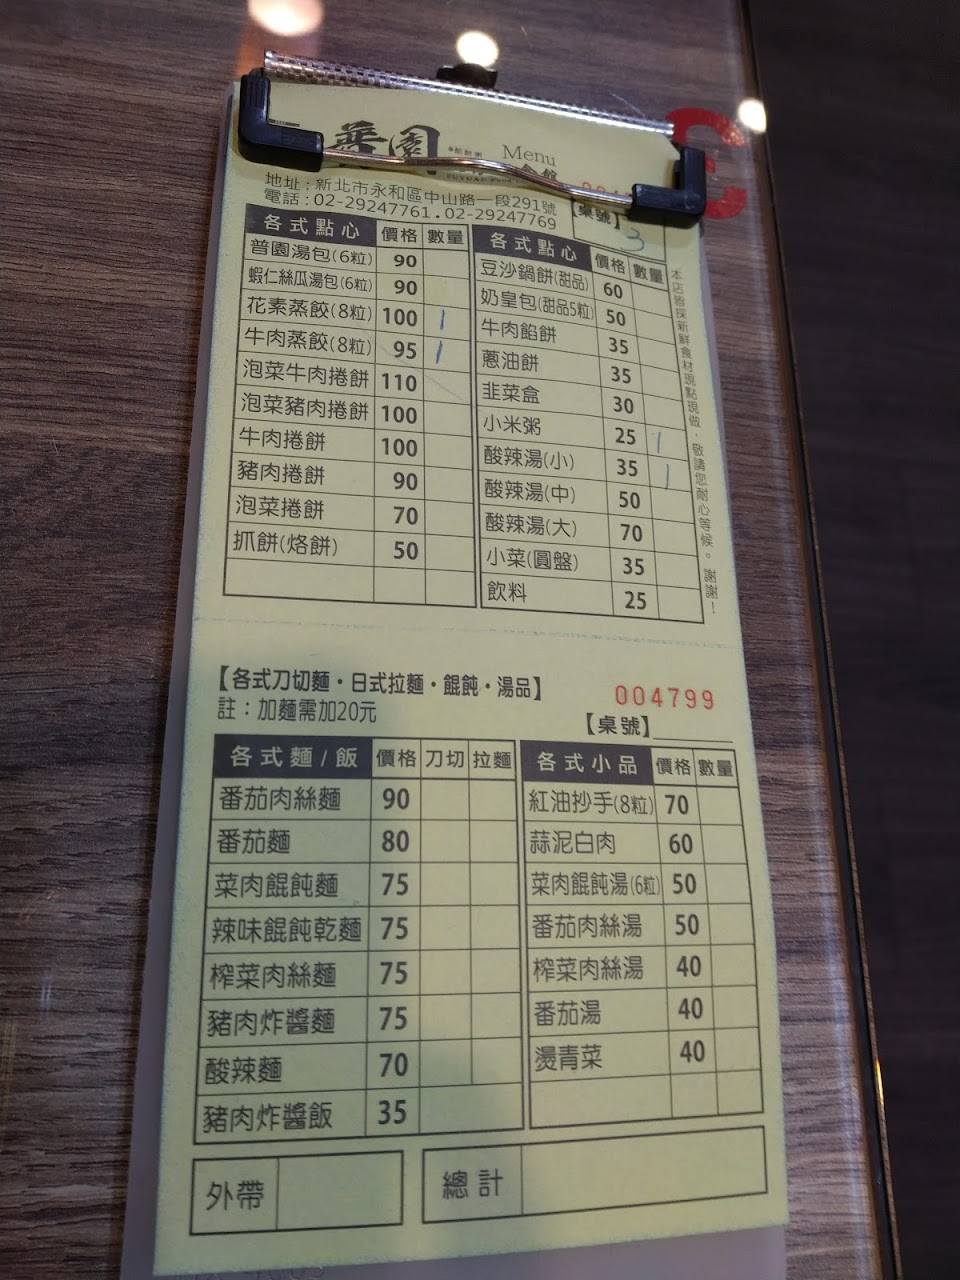 普園
Menu
地址：新北市永和區中山路一段291號
電話：02-29247761．02-29247769
【桌號】3
各式點心 價格 數量
普園湯包(6粒) 90
蝦仁絲瓜湯包(6粒) 90
花素蒸餃(8粒) 100 1
牛肉蒸餃(8粒) 95 1
泡菜牛肉捲餅 110
泡菜豬肉捲餅 100
牛肉捲餅 100
豬肉捲餅 90
泡菜捲餅 70
抓餅(烙餅) 50
各式點心 價格 數量
豆沙鍋餅(甜品) 60
奶皇包(甜品5粒) 50
牛肉餡餅 35
蔥油餅 35
韭菜盒 30
小米粥 25 1
酸辣湯(小) 35 1
酸辣湯(中) 50
酸辣湯(大) 70
小菜(圓盤) 35
飲料 25
本店皆採新鮮食材現點現做．敬請您耐心等候。謝謝！
【各式刀切麵・日式拉麵・餛飩・湯品】
004799
註：加麵需加20元
【桌號】
各式麵/飯 價格 刀切 拉麵
番茄肉絲麵 90
番茄麵 80
菜肉餛飩麵 75
辣味餛飩乾麵 75
榨菜肉絲麵 75
豬肉炸醬麵 75
酸辣麵 70
豬肉炸醬飯 35
各式小品 價格 數量
紅油抄手(8粒) 70
蒜泥白肉 60
菜肉餛飩湯(6粒) 50
番茄肉絲湯 50
榨菜肉絲湯 40
番茄湯 40
燙青菜 40
外帶
總計